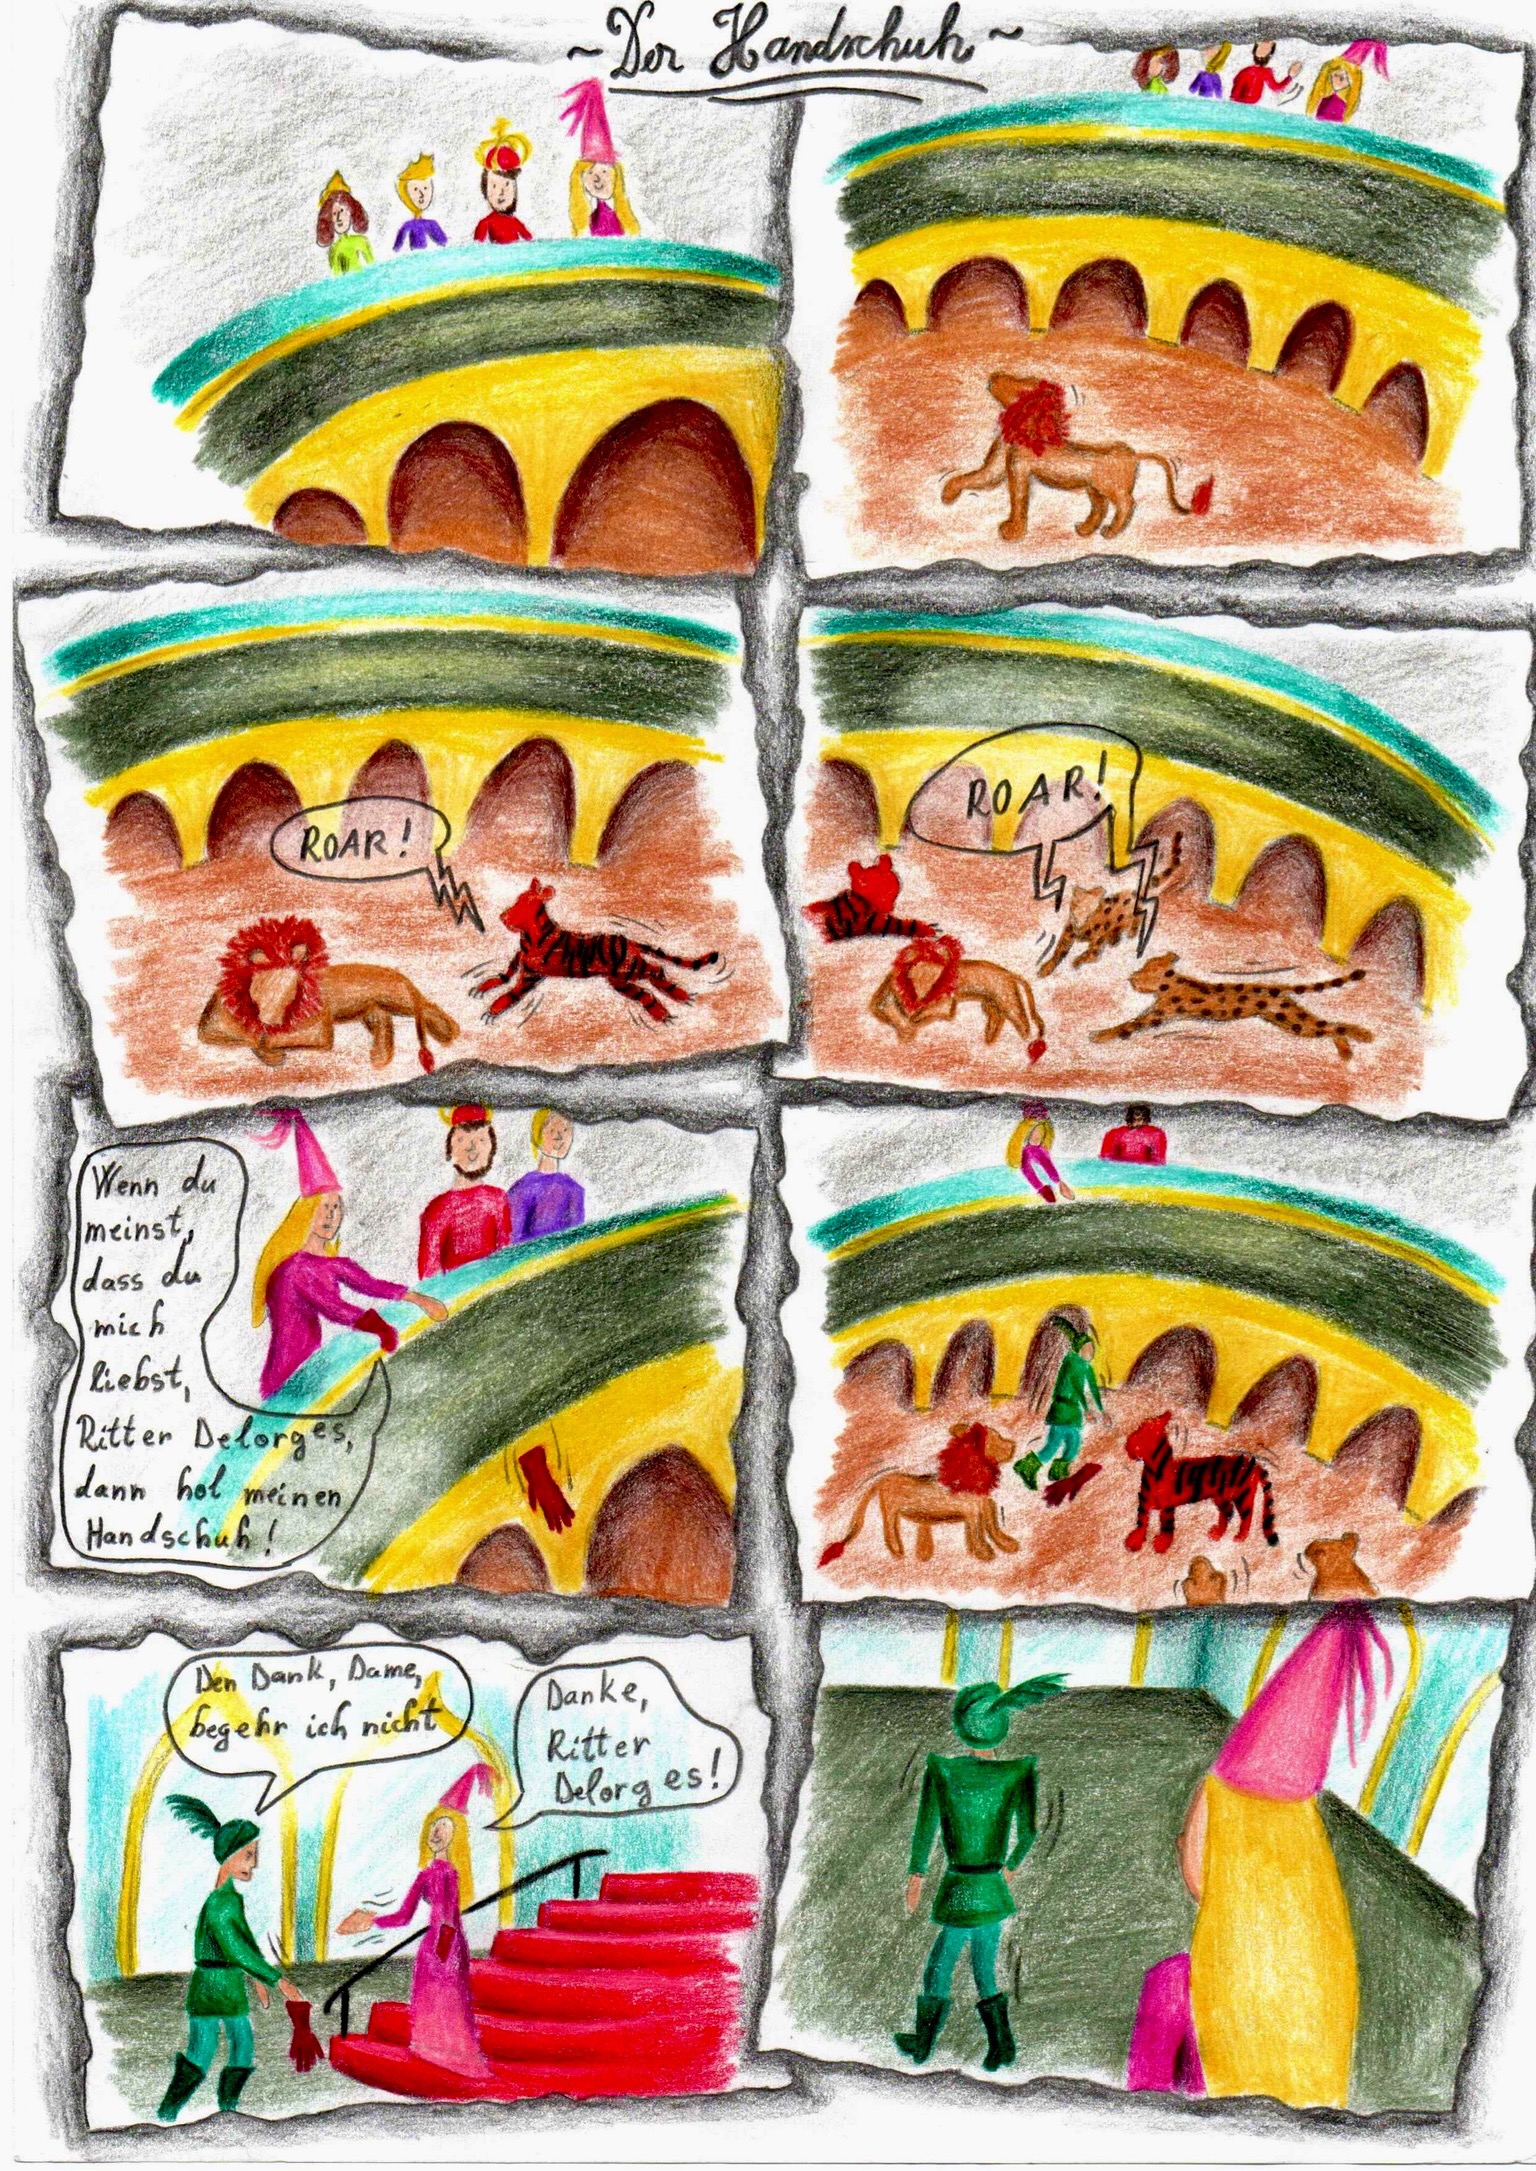 ~ Der Handschuh ~
ROAR!
ROAR!
Wenn du
meinst,
dass du
mich
liebst,
Ritter Delorges,
dann hol meinen
Handschuh!
Den Dank, Dame,
begehr ich nicht
Danke,
Ritter
Delorges!